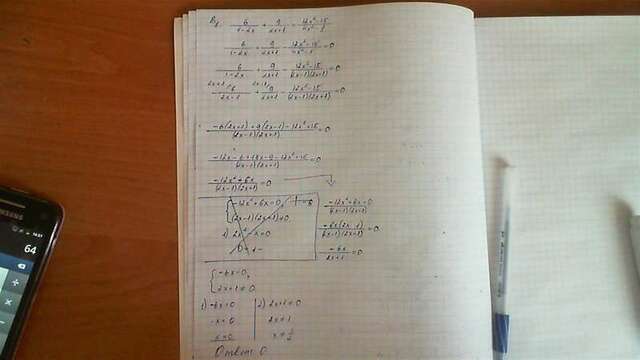 6/(1-2x) + 9/(2x+1) = (12x²-15)/(4x²-1)
6/(1-2x) + 9/(2x+1) - (12x²-15)/(4x²-1) = 0
6/(1-2x) + 9/(2x+1) - (12x²-15)/((2x-1)(2x+1)) = 0
-6/(2x-1) + 9/(2x+1) - (12x²-15)/((2x-1)(2x+1)) = 0
(-6(2x+1)+9(2x-1)-12x²+15)/((2x-1)(2x+1)) = 0
(-12x-6+18x-9-12x²+15)/((2x-1)(2x+1)) = 0
(-12x²+6x)/((2x-1)(2x+1)) = 0
-12x²+6x=0,
(2x-1)(2x+1)≠0
1) 2x²-x=0
(-12x²+6x=0)/((2x-1)(2x+1))
-6x/(2x+1) = 0
-6x=0,
2x+1≠0
1) -6x=0
x=0
2) 2x+1≠0
Ответ: 0
SAMSUNG
64